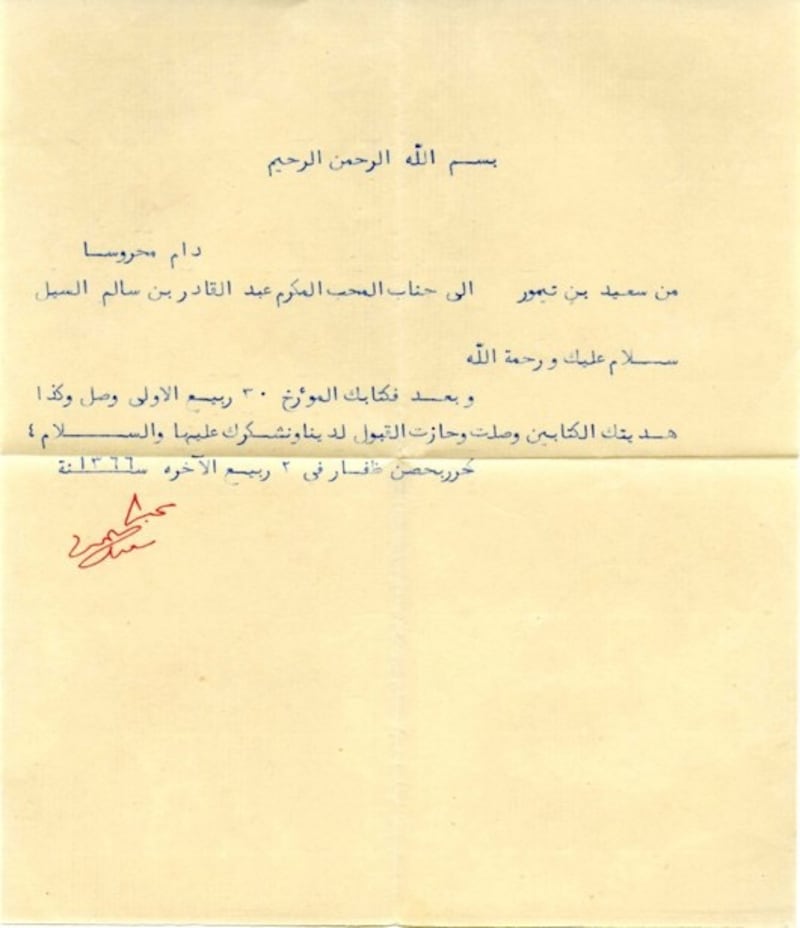 بسم الله الرحمن الرحيم
دام محروسا
من سعيد بن تيمور الى جناب المحب المكرم عبد القادر بن سالم السيل
سلام عليك ورحمة الله
وبعد فكتابك الموءرخ ٣٠ ربيع الاولى وصل وكذا
هديتك الكتابين وصلت وحازت القبول لدينا ونشكرك عليها والسلام ٤
حرر بحصن ظفار فى ٢ ربيع الآخره سنة ١٣٦٦